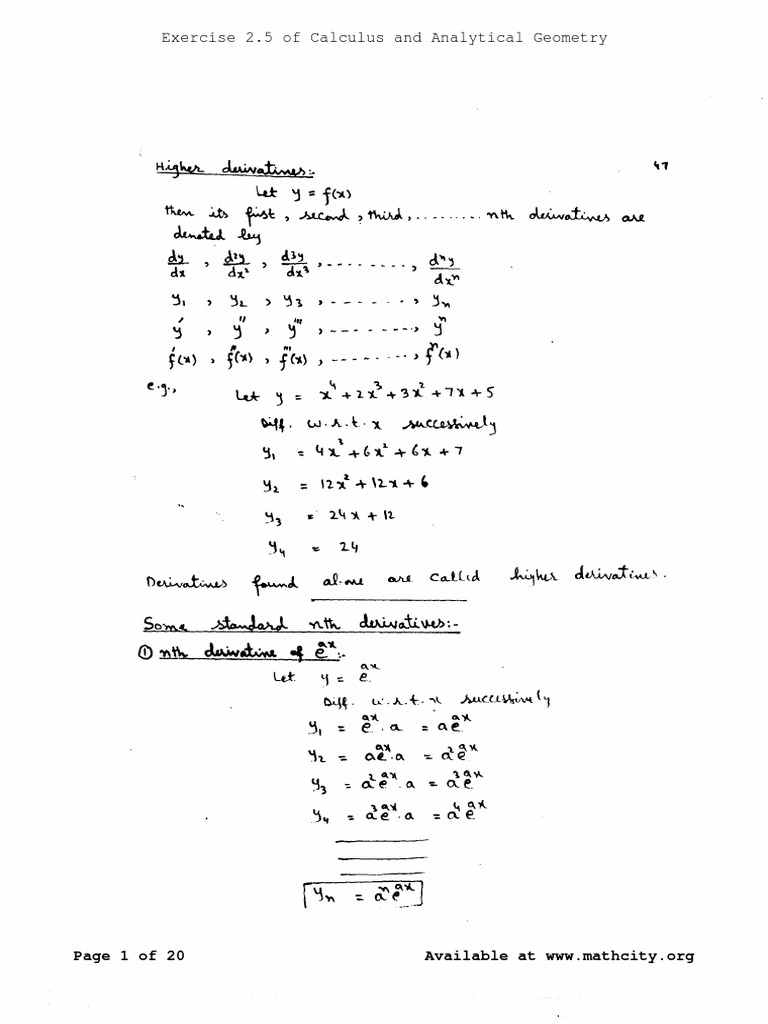 Exercise 2.5 of Calculus and Analytical Geometry
47
Higher derivatives:-
Let y = f(x)
then its first, second, third, ......... nth derivatives are
denoted by
dy/dx , d²y/dx² , d³y/dx³ , ........., dⁿy/dxⁿ
y₁ , y₂ , y₃ , - - - - - - , yₙ
y′ , y″ , y‴ , - - - - - - - , yⁿ
f′(x) , f″(x) , f‴(x) , ........., fⁿ(x)
e.g., Let y = x⁴ + 2x³ + 3x² + 7x + 5
Diff. w.r.t. x successively
y₁ = 4x³ + 6x² + 6x + 7
y₂ = 12x² + 12x + 6
y₃ = 24x + 12
y₄ = 24
Derivatives found above are called higher derivatives.
Some standard nth derivatives:-
① nth derivative of eᵃˣ:-
Let y = eᵃˣ
Diff. w.r.t. x successively
y₁ = eᵃˣ . a = aeᵃˣ
y₂ = aeᵃˣ . a = a²eᵃˣ
y₃ = a²eᵃˣ . a = a³eᵃˣ
y₄ = a³eᵃˣ . a = a⁴eᵃˣ
yₙ = aⁿeᵃˣ
Page 1 of 20
Available at www.mathcity.org